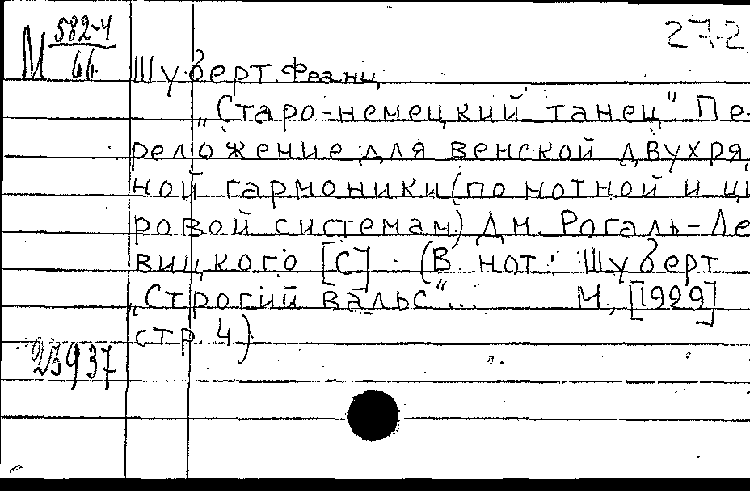 М 582-4
66
27-2
Шуберт. Франц
„Старо-немецкий танец" Пе-
реложение для венской двухряд
ной гармоники (по нотной и ци
ровой системам) Дм. Рогаль-Ле
вицкого [С] (В нот: Шуберт
„Строгий вальс"... М, [1929]
стр. 4)
23937